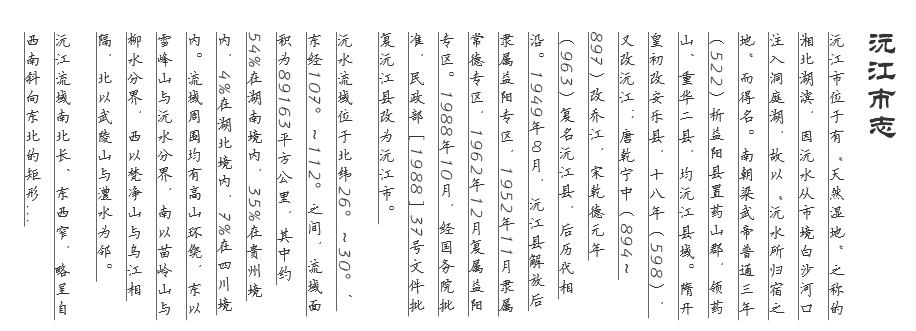 沅江市志
沅江市位于有“天然湿地”之称的
湘北湖滨，因沅水从市境白沙河口
注入洞庭湖，故以“沅水所归宿之
地”而得名。南朝梁武帝普通三年
（522）析益阳县置药山郡，领药
山、重华二县，均沅江县域。隋开
皇初改安乐县，十八年（598），
又改沅江；唐乾宁中（894~
897）改乔江，宋乾德元年
（963）复名沅江县，后历代相
沿。1949年8月，沅江县解放后
隶属益阳专区，1952年11月隶属
常德专区，1962年12月复属益阳
专区。1988年10月，经国务院批
准，民政部［1988］37号文件批
复沅江县改为沅江市。
沅水流域位于北纬26°~30°、
东经107°~112°之间，流域面
积为89163平方公里，其中约
54%在湖南境内，35%在贵州境
内，4%在湖北境内，7%在四川境
内。流域周围均有高山环绕，东以
雪峰山与沅水分界，南以苗岭山与
柳水分界，西以梵净山与乌江相
隔，北以武陵山与澧水为邻。
沅江流域南北长、东西窄，略呈自
西南斜向东北的矩形...